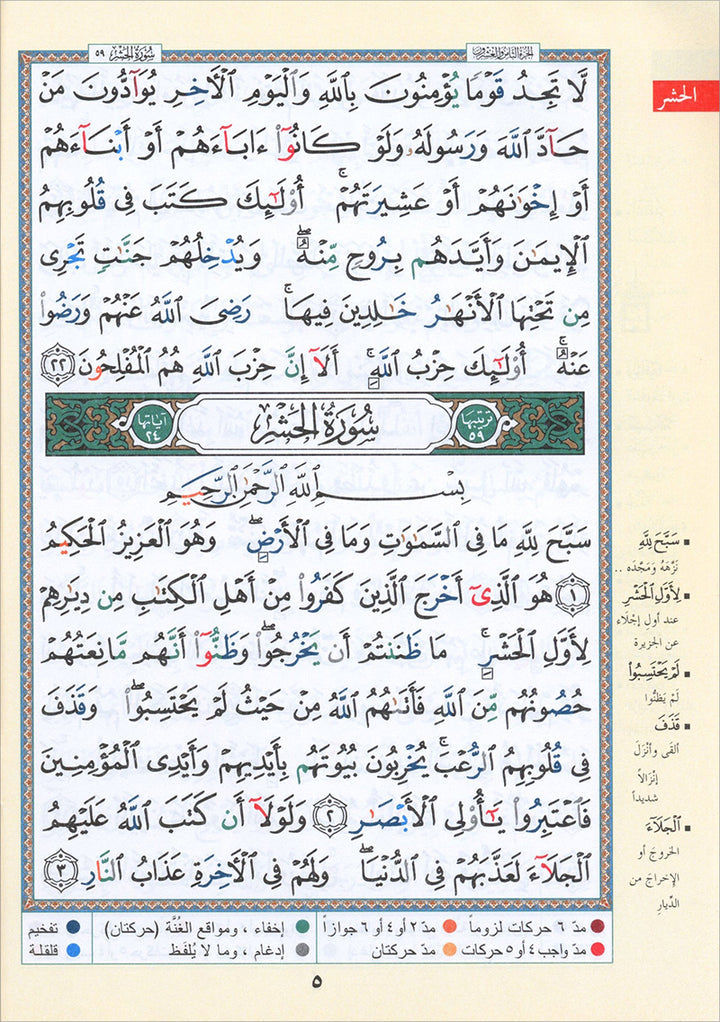 الجزء الثامن والعشرون
سورة الحشر ٥٩
الحشر
لَّا تَجِدُ قَوْمًا يُؤْمِنُونَ بِٱللَّهِ وَٱلْيَوْمِ ٱلْأَخِرِ يُوَآدُّونَ مَنْ
حَآدَّ ٱللَّهَ وَرَسُولَهُۥ وَلَوْ كَانُوٓا۟ ءَابَآءَهُمْ أَوْ أَبْنَآءَهُمْ
أَوْ إِخْوَٰنَهُمْ أَوْ عَشِيرَتَهُمْ ۚ أُو۟لَٰٓئِكَ كَتَبَ فِى قُلُوبِهِمُ
ٱلْإِيمَٰنَ وَأَيَّدَهُم بِرُوحٍ مِّنْهُ ۖ وَيُدْخِلُهُمْ جَنَّٰتٍ تَجْرِى
مِن تَحْتِهَا ٱلْأَنْهَٰرُ خَٰلِدِينَ فِيهَا ۚ رَضِىَ ٱللَّهُ عَنْهُمْ وَرَضُوا۟
عَنْهُ ۚ أُو۟لَٰٓئِكَ حِزْبُ ٱللَّهِ ۚ أَلَآ إِنَّ حِزْبَ ٱللَّهِ هُمُ ٱلْمُفْلِحُونَ ٢٢
ترتيبها ٥٩ سُورَةُ الحَشْرِ آياتها ٢٤
بِسْمِ ٱللَّهِ ٱلرَّحْمَٰنِ ٱلرَّحِيمِ
سَبَّحَ لِلَّهِ مَا فِى ٱلسَّمَٰوَٰتِ وَمَا فِى ٱلْأَرْضِ ۖ وَهُوَ ٱلْعَزِيزُ ٱلْحَكِيمُ
١ هُوَ ٱلَّذِىٓ أَخْرَجَ ٱلَّذِينَ كَفَرُوا۟ مِنْ أَهْلِ ٱلْكِتَٰبِ مِن دِيَٰرِهِمْ
لِأَوَّلِ ٱلْحَشْرِ ۚ مَا ظَنَنتُمْ أَن يَخْرُجُوا۟ ۖ وَظَنُّوٓا۟ أَنَّهُم مَّانِعَتُهُمْ
حُصُونُهُم مِّنَ ٱللَّهِ فَأَتَىٰهُمُ ٱللَّهُ مِنْ حَيْثُ لَمْ يَحْتَسِبُوا۟ ۖ وَقَذَفَ
فِى قُلُوبِهِمُ ٱلرُّعْبَ ۚ يُخْرِبُونَ بُيُوتَهُم بِأَيْدِيهِمْ وَأَيْدِى ٱلْمُؤْمِنِينَ
فَٱعْتَبِرُوا۟ يَٰٓأُو۟لِى ٱلْأَبْصَٰرِ ٢ وَلَوْلَآ أَن كَتَبَ ٱللَّهُ عَلَيْهِمُ
ٱلْجَلَآءَ لَعَذَّبَهُمْ فِى ٱلدُّنْيَا ۖ وَلَهُمْ فِى ٱلْأَخِرَةِ عَذَابُ ٱلنَّارِ ٣
▪ سَبَّحَ لِلَّهِ
نَزَّهَهُ وَمَجَّدَه ..
▪ لِأَوَّلِ ٱلْحَشْرِ
عند أول إجْلاَء
عن الجزيرة
▪ لَمْ يَحْتَسِبُوا۟
لَمْ يَظنُّوا
▪ قَذَفَ
ألقى وأنْزَلَ
إنْزَالاً
شديداً
▪ ٱلْجَلَآءَ
الخروجَ أو
الإخراجَ من
الدِّيارِ
● مدّ ٦ حركات لزوماً ● مدّ ٢ أو ٤ أو ٦ جوازاً ● إخفاء ، ومواقع الغُنَّة (حركتان) ● تفخيم
● مدّ واجب ٤ أو ٥ حركات ● مدّ حركتان ● إدغام ، وما لا يُلفَظ ● قلقلة
٥